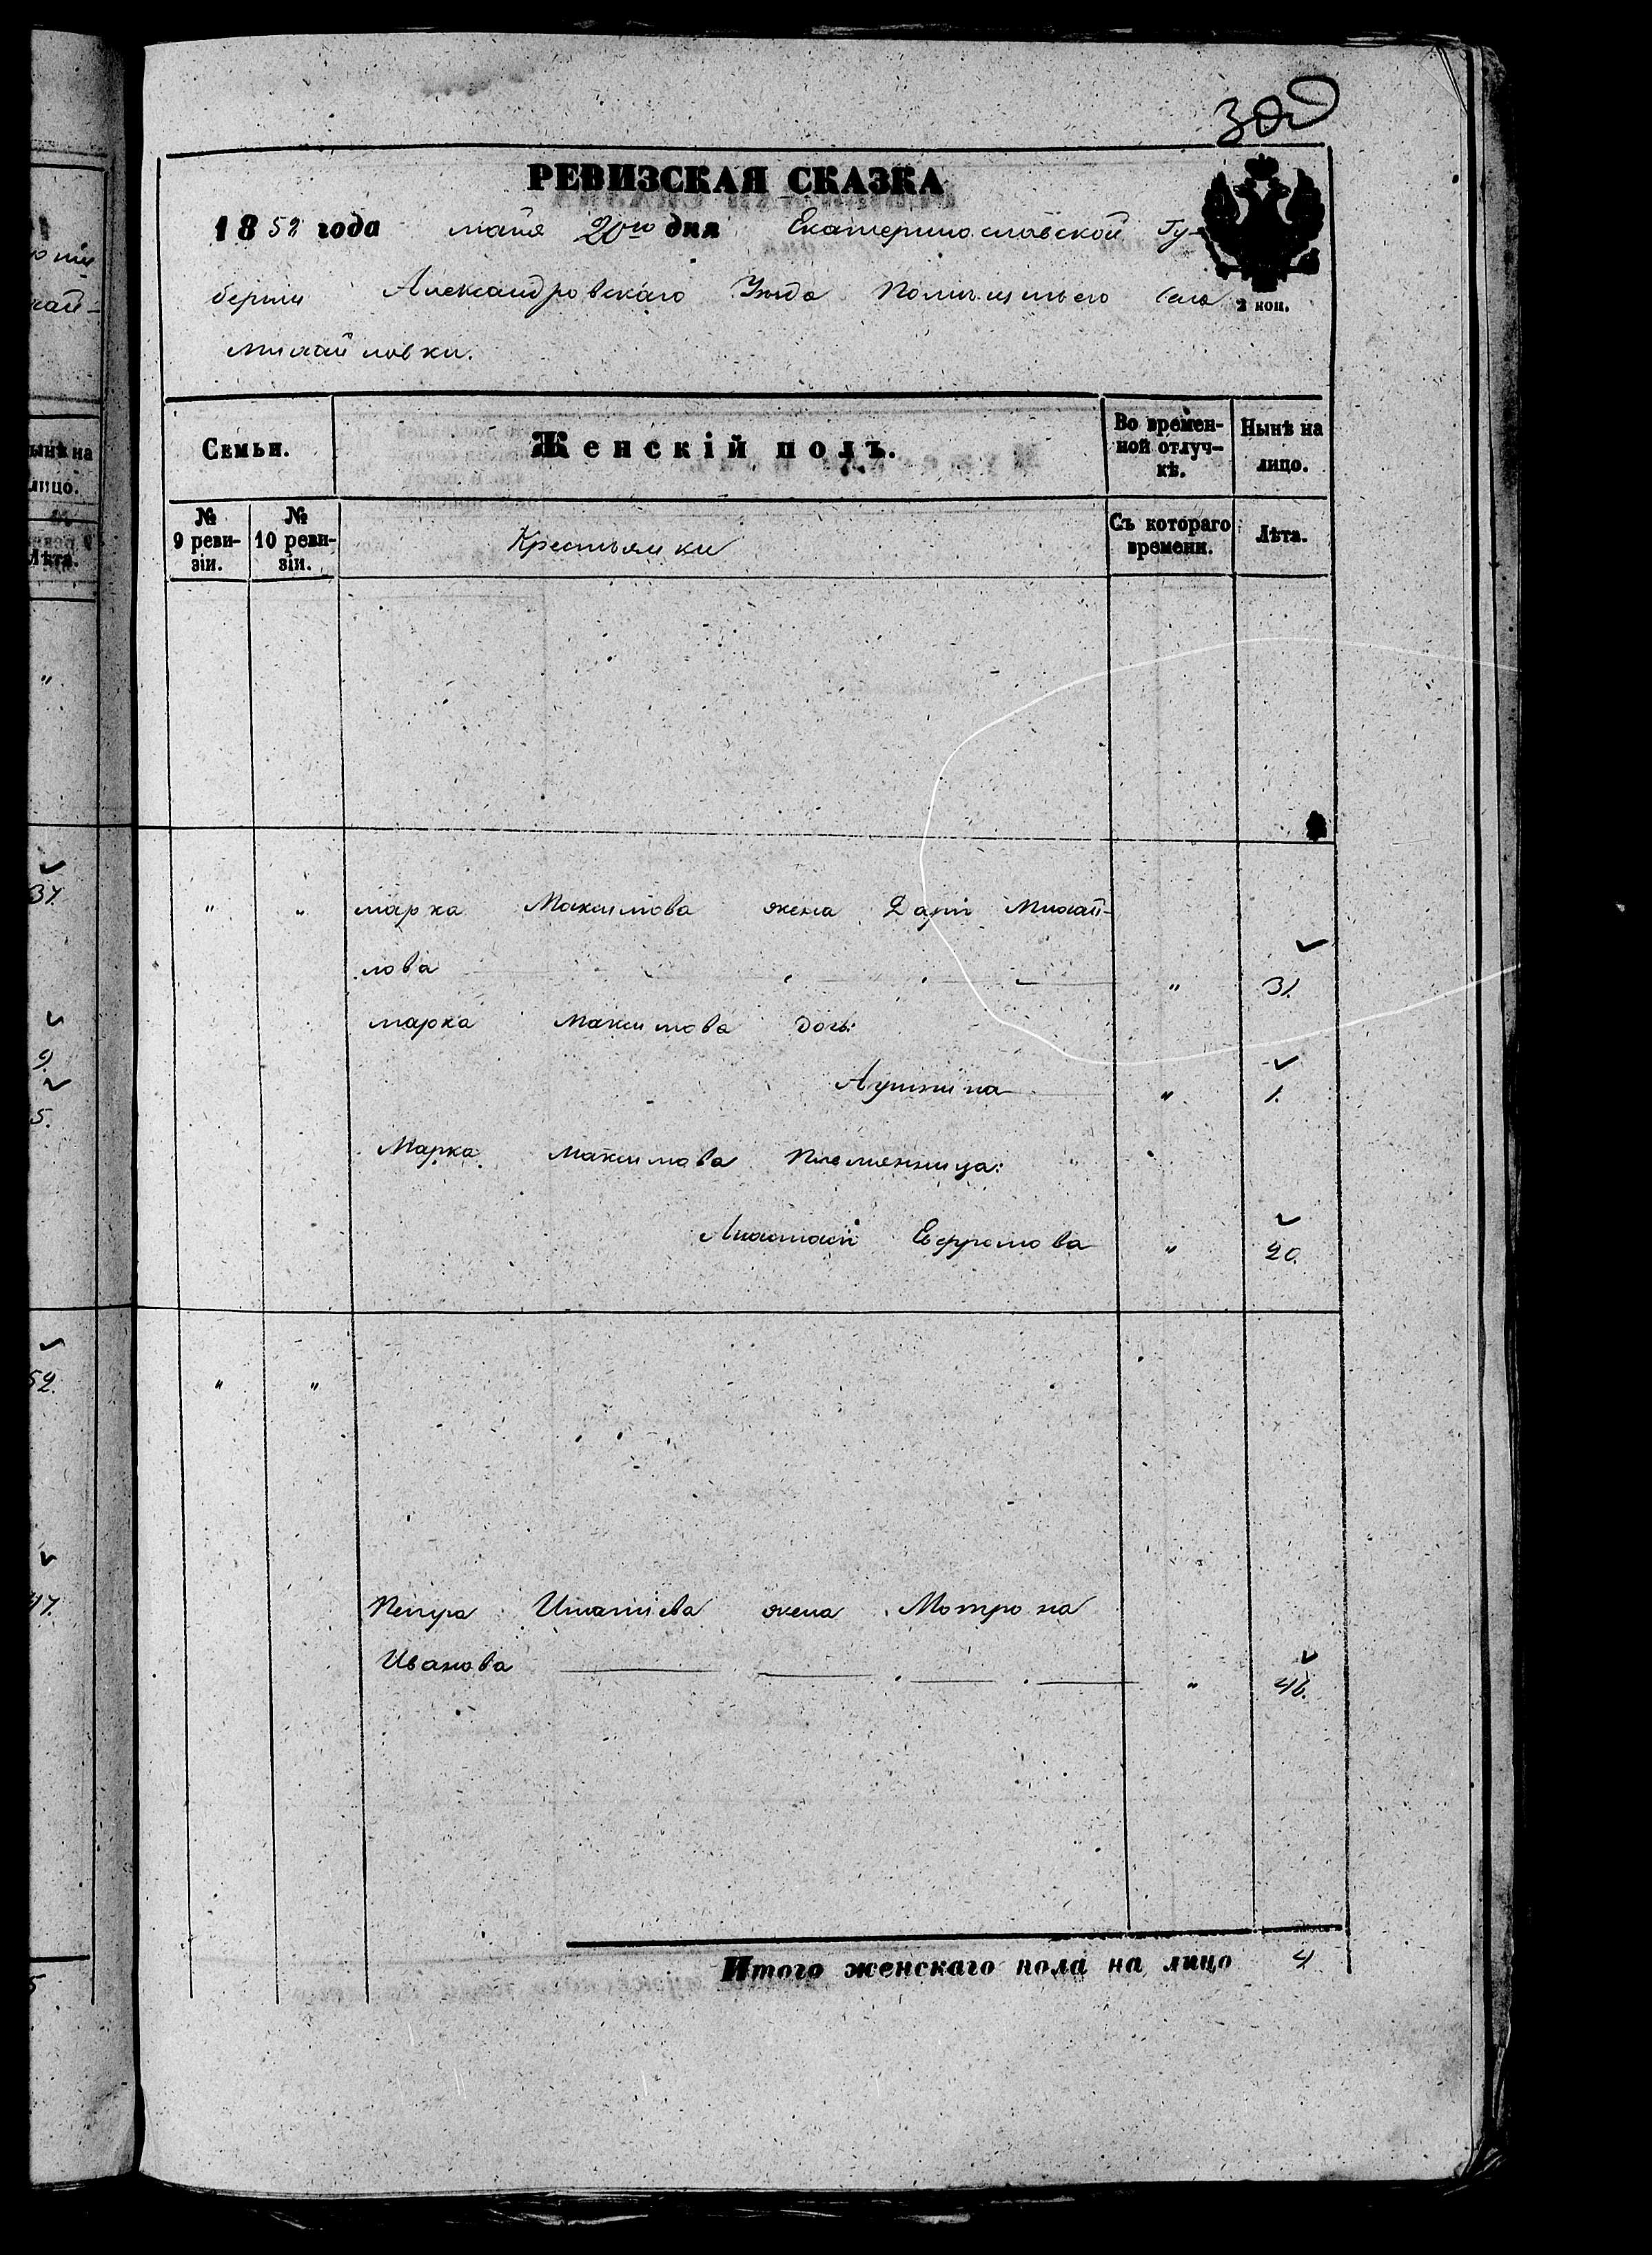 РЕВИЗСКАЯ СКАЗКА
1858 года мая 20го дня Екатеринославской Гу-
берніи Александровскаго Уѣзда Помѣщичьего Села
Михайловки.
2 коп.
Семьи.
Женскій полъ.
Во времен-
ной отлуч-
кѣ.
Нынѣ на
лицо.
№
9 реви-
зіи.
№
10 реви-
зіи.
Крестьянки
Съ котораго
времени.
Лѣта.
" " марка Максимова жена Дарія Михай-
лова " 31.
марка максимова дочь:
" 1.
Марка максимова племянница:
Ефремова " 20.
" "
Петра Игнатіева жена Мотрона
Иванова " 46.
Итого женскаго пола на лицо 4
ынѣ на
лицо.
Лѣта.
"
37.
9.
5.
52.
47.
5